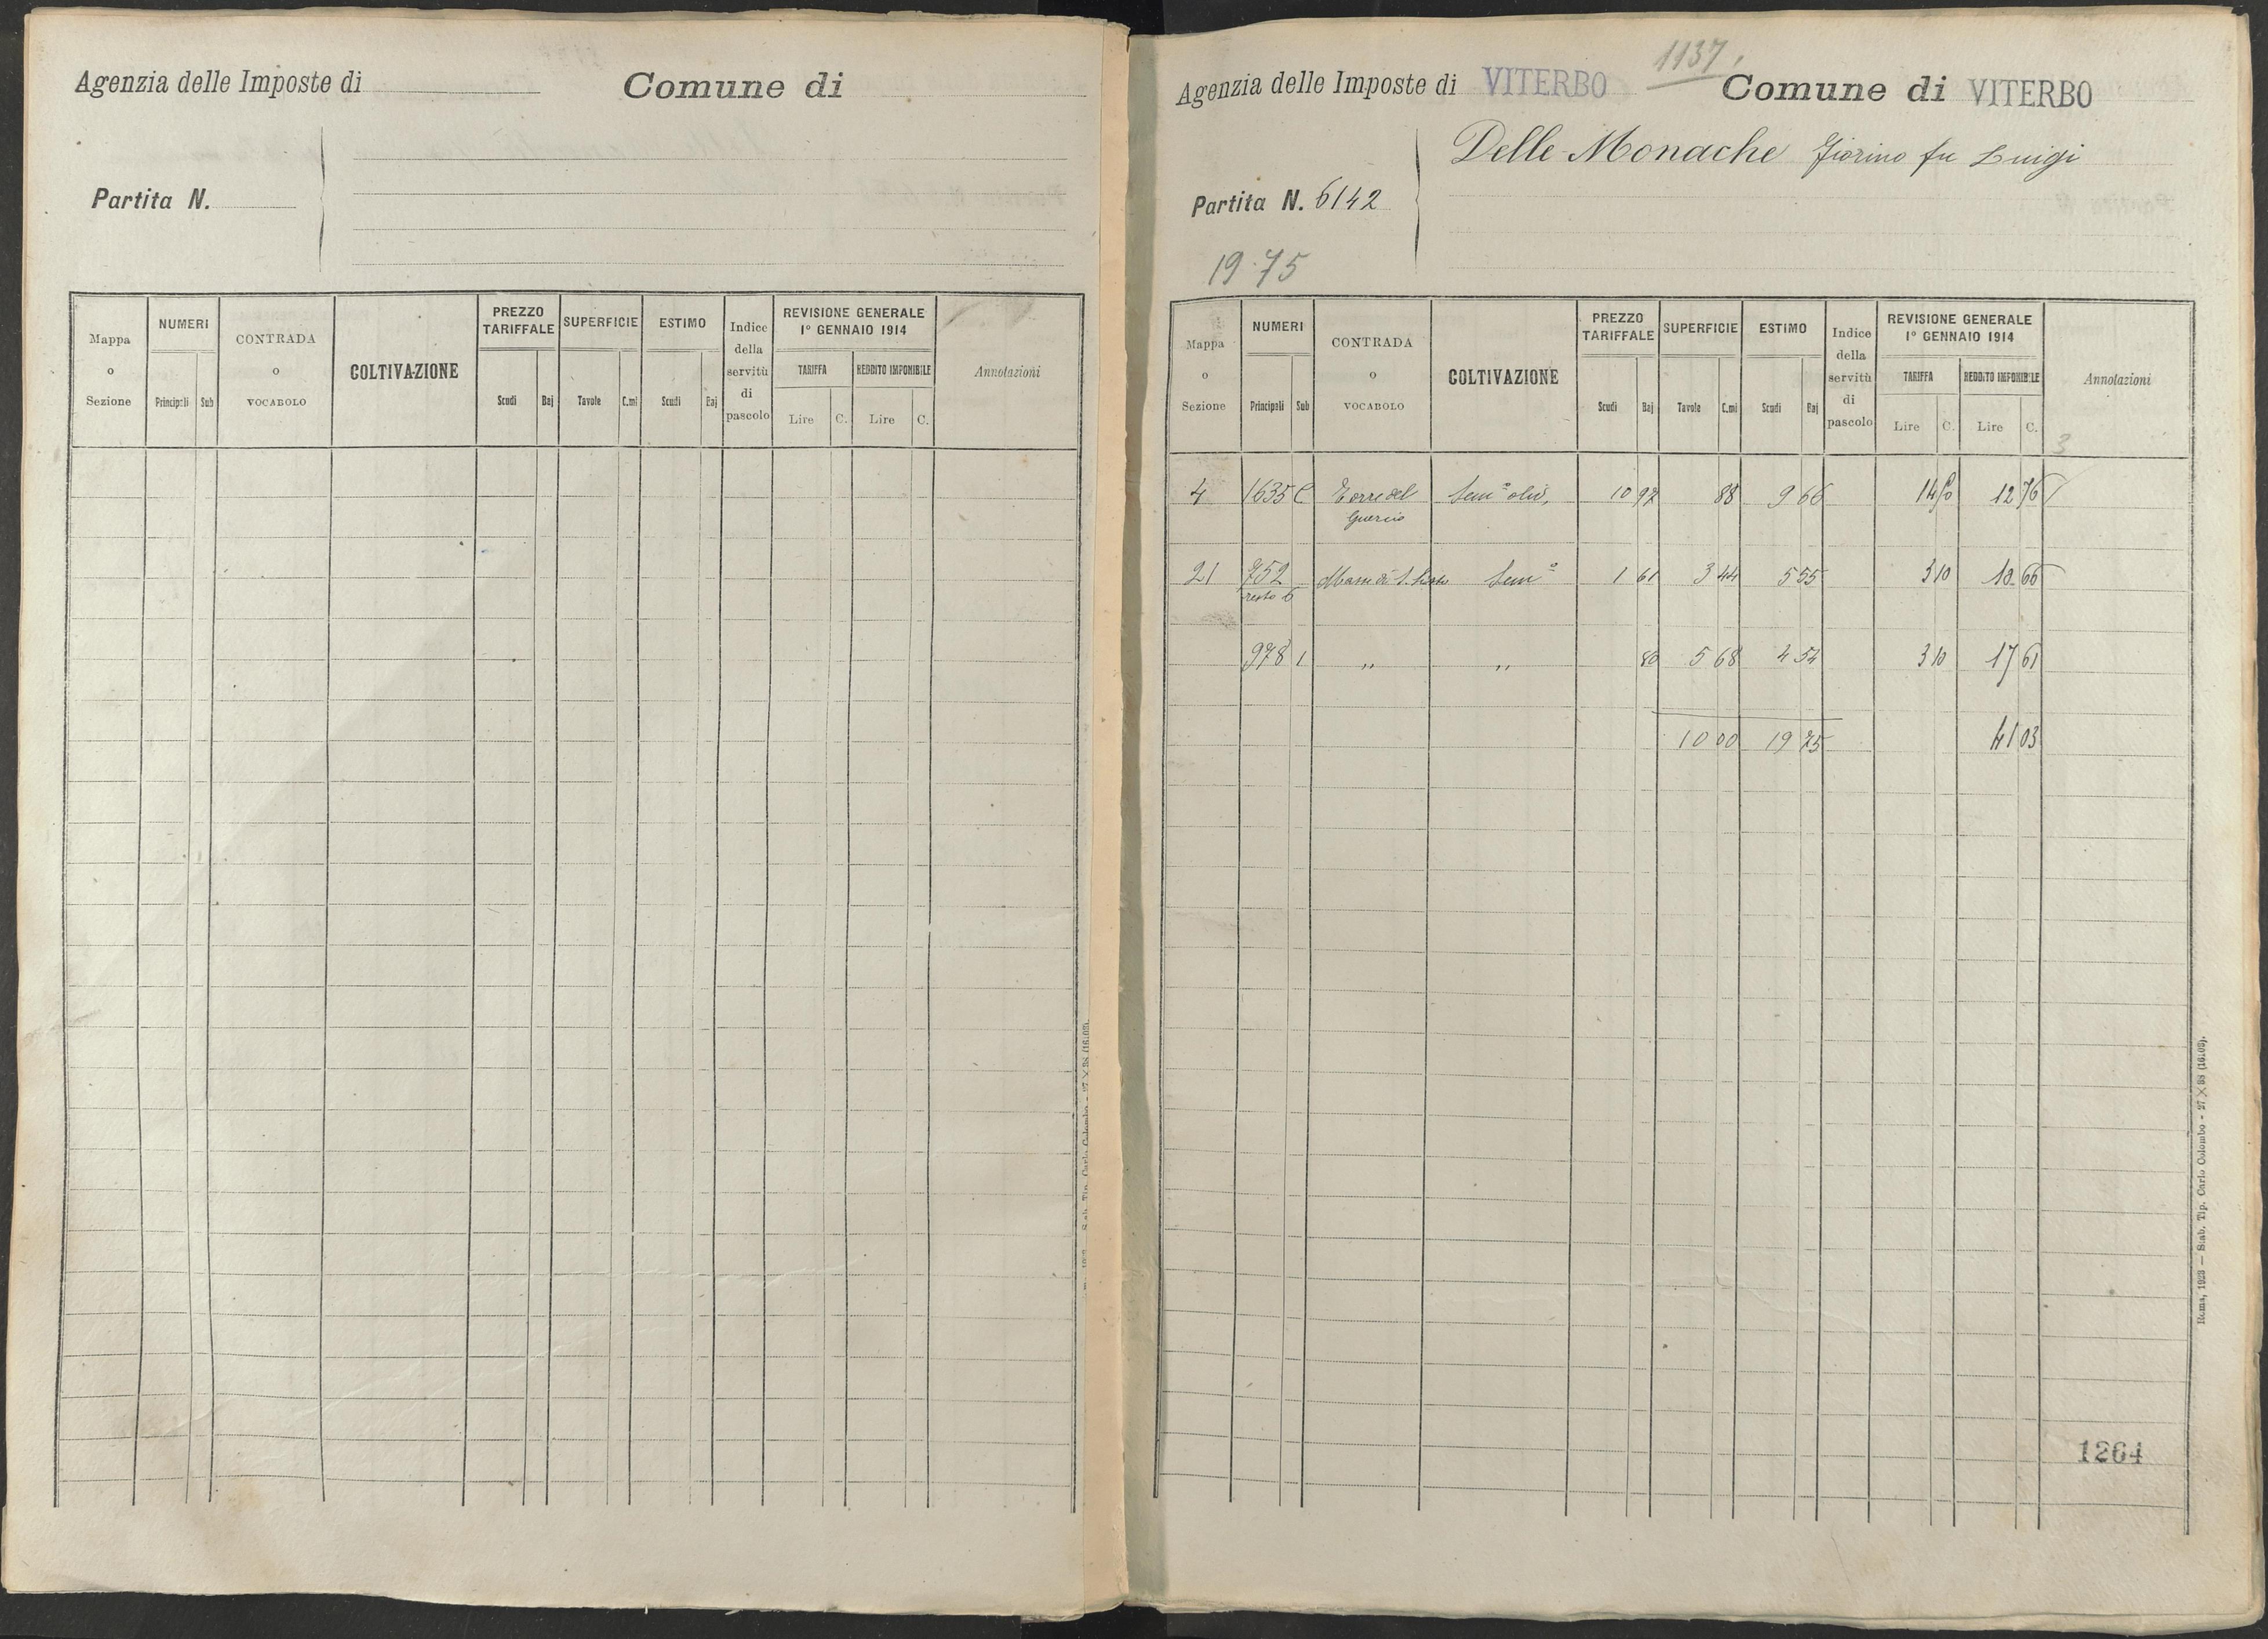 Agenzia delle Imposte di
Comune di
Partita N.
Mappa o Sezione
NUMERI
Principali Sub
CONTRADA o VOCABOLO
COLTIVAZIONE
PREZZO TARIFFALE
Scudi Baj
SUPERFICIE
Tavole C.mi
ESTIMO
Scudi Baj
Indice della servitù di pascolo
REVISIONE GENERALE
1° GENNAIO 1914
TARIFFA
Lire C.
REDDITO IMPONIBILE
Lire C.
Annotazioni
1137
Agenzia delle Imposte di VITERBO
Comune di VITERBO
Delle Monache Fiorino fu Luigi
Partita N. 6142
19.75
Mappa o Sezione
NUMERI
Principali Sub
CONTRADA o VOCABOLO
COLTIVAZIONE
PREZZO TARIFFALE
Scudi Baj
SUPERFICIE
Tavole C.mi
ESTIMO
Scudi Baj
Indice della servitù di pascolo
REVISIONE GENERALE
1° GENNAIO 1914
TARIFFA
Lire C.
REDDITO IMPONIBILE
Lire C.
Annotazioni
3
4 1635 C Torre del Semo oliv. 10 97 88 9 66 12 76
Guercio
21 752 Semo 1 61 3 44 5 55 3 10 10 66
resto 6
978 1 " " 80 5 68 4 54 3 10 17 61
10 00 19 75 41 03
1264
Roma, 1923 — Stab. Tip. Carlo Colombo - 27 × 38 (16103).